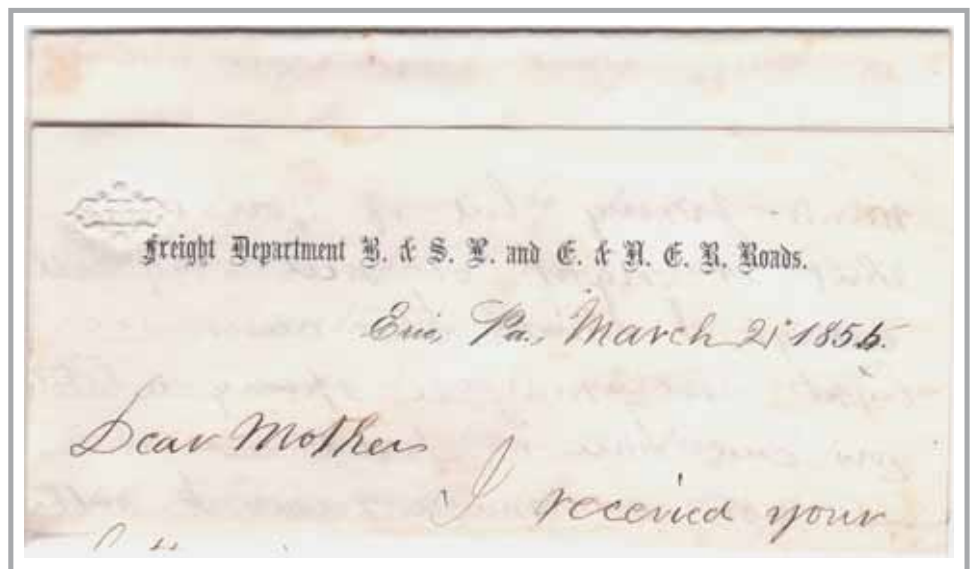 Freight Department B. & S. L. and E. & N. E. R. Roads.
Erie, Pa. March 21 1855.
Dear Mother
I received your